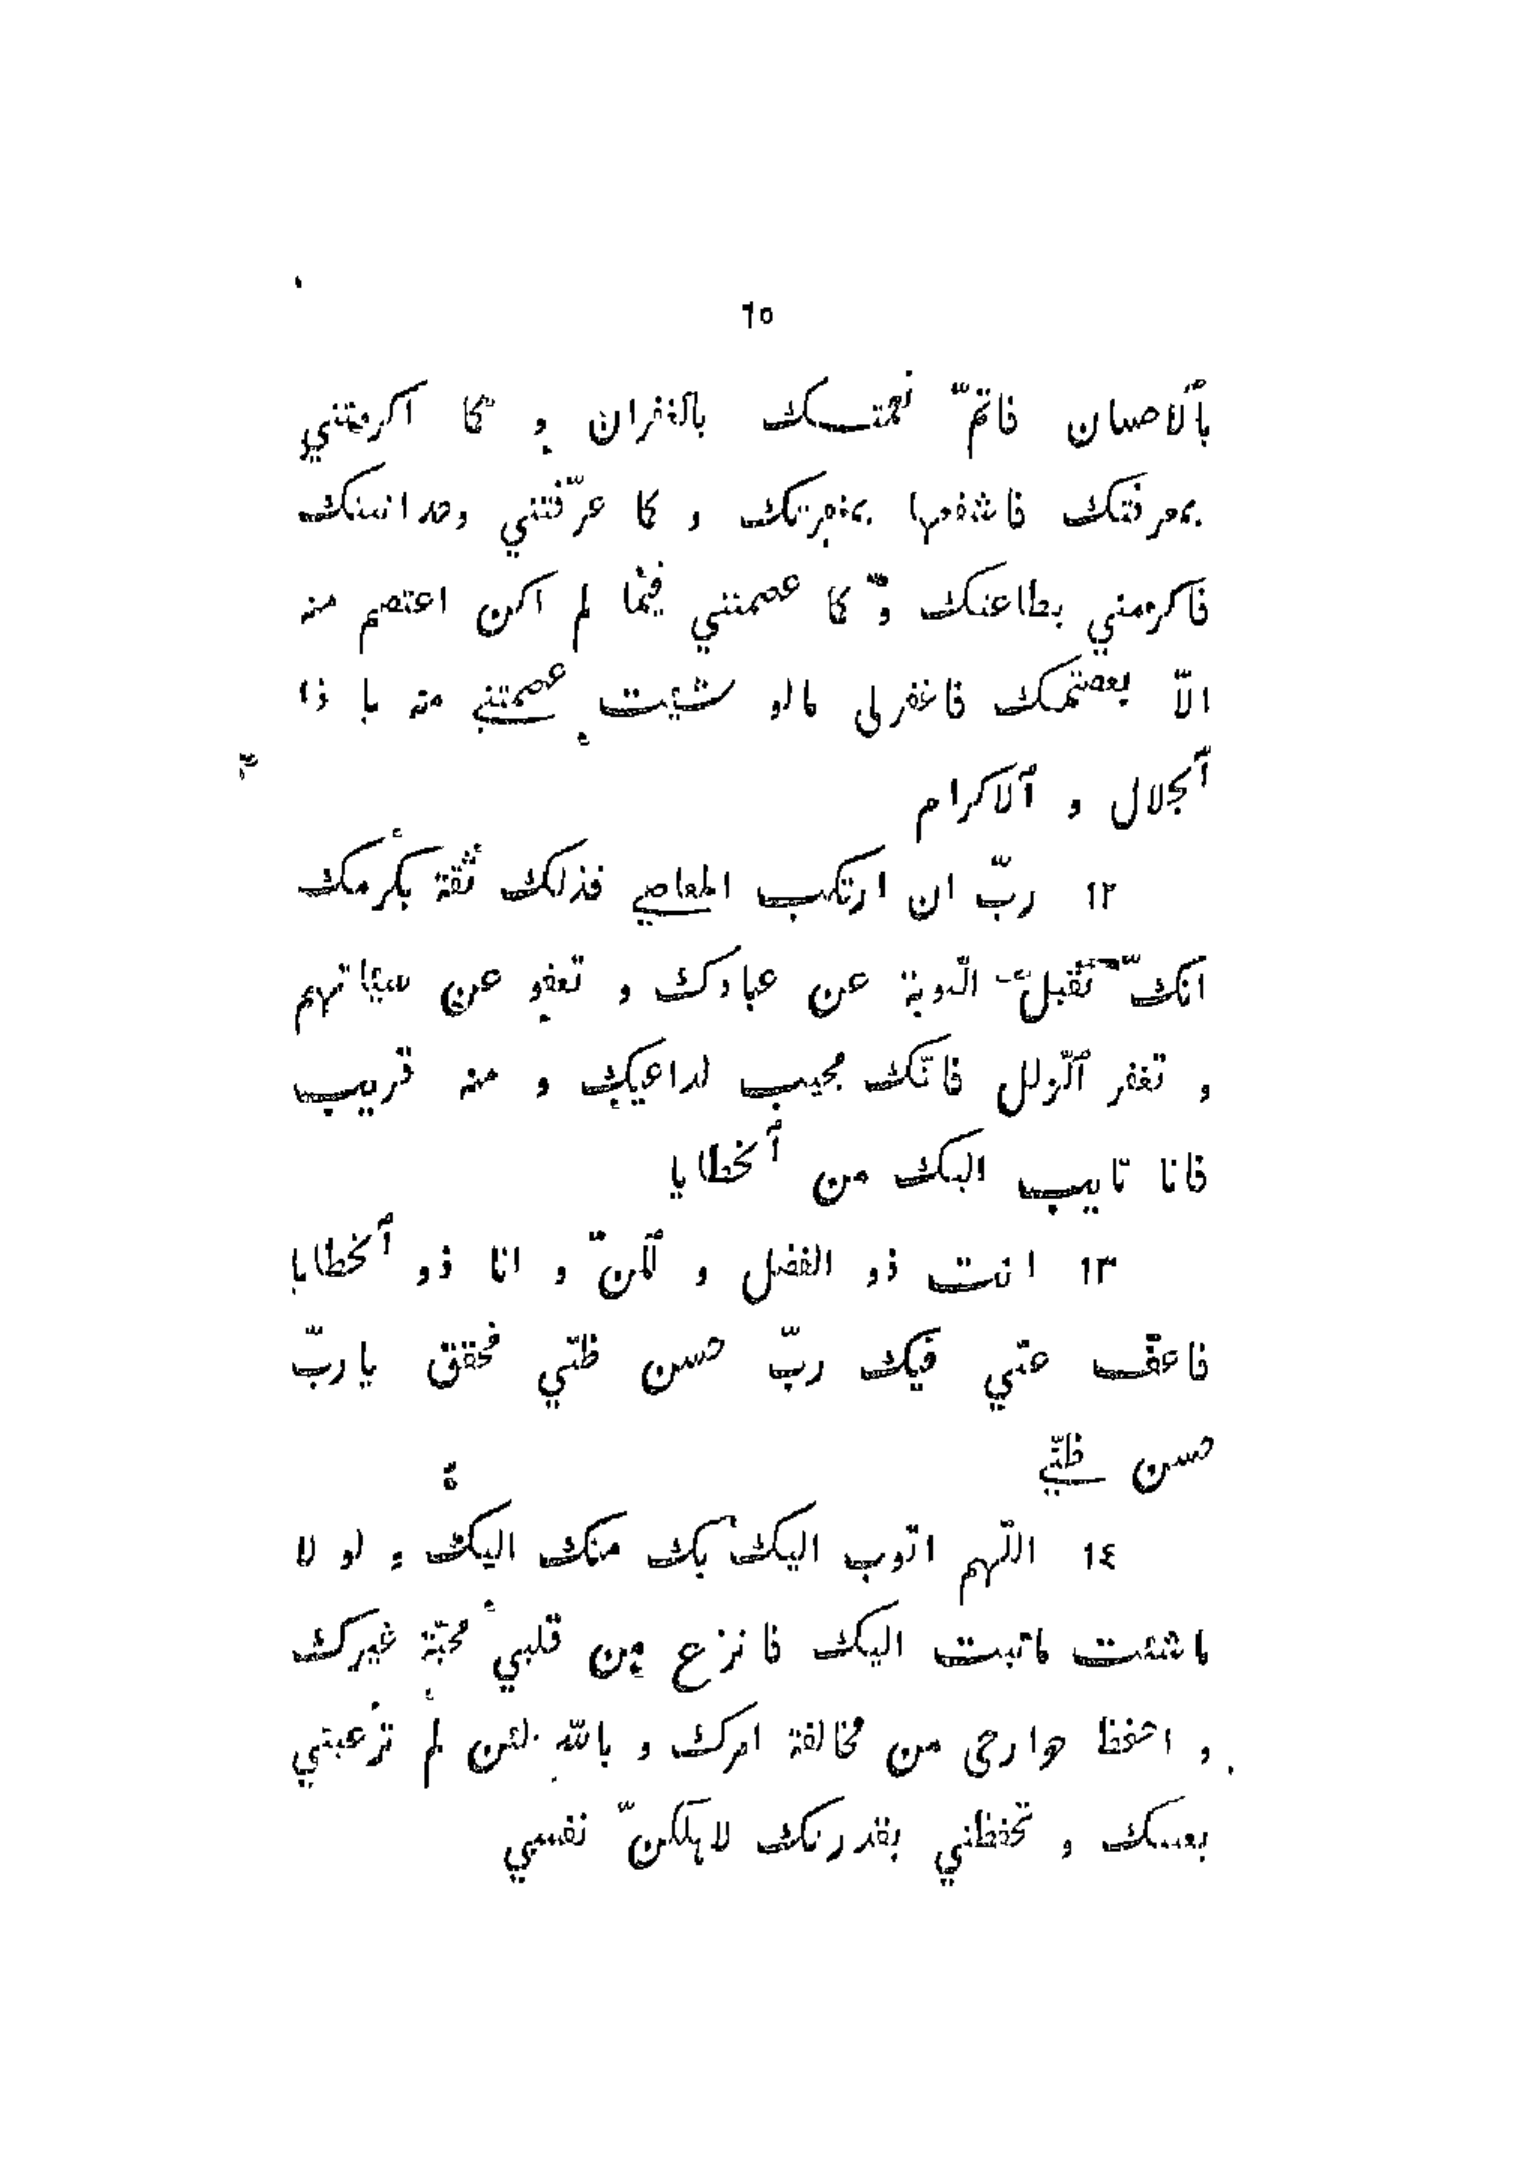 ٦٥
بٱلاحسان فاتمّ نعمتـــك بالغفران و كما اكرمتني
بمعرفتك فاشفعها بمغفرتك و كما عرّفتني وحدانيتك
فاكرمني بطاعتك و كما عصمتني فيما لم اكن اعتصم منه
الّا بعصمتك فاغفر لي مالو شئت عصمتني منه يا ذا
ٱلجلال و ٱلاكرام
١٢ ربّ ان ارتكب المعاصي فذلك ثقة بكرمك
انّك تقبل التوبة عن عبادك و تعفو عن سيئاتهم
و تغفر ٱلزّلل فانّك مجيب لداعيك و منه قريب
فانا تايب اليك من ٱلخطايا
١٣ انت ذو الفضل و ٱلمنّ و انا ذو ٱلخطايا
فاعفُ عنّي فيك ربّ حسن ظنّي فحقق يا ربّ
حسن ظنّي
١٤ اللّهم اتوب اليك بك منك اليك و لو لا
ماشئت ماتبت اليك فانزع من قلبي محبّة غيرك
و احفظ جوارحي من مخالفة امرك و باللّه لئن لم ترعبني
بعينك و تحفظني بقدرتك لاهلكنّ نفسي